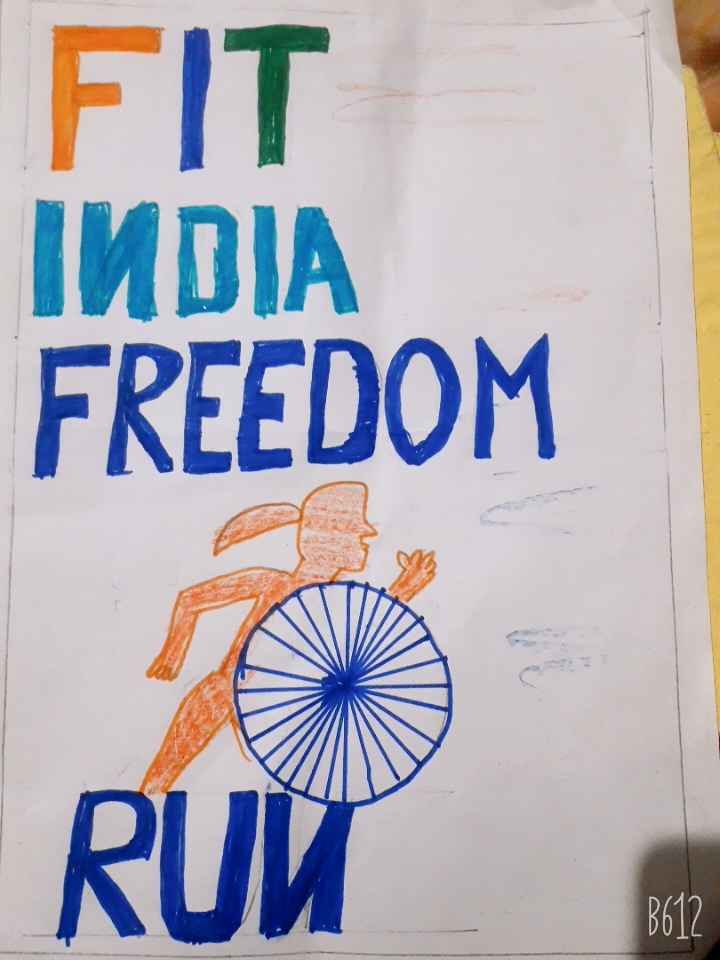 FIT
INDIA
FREEDOM
RUN
B612